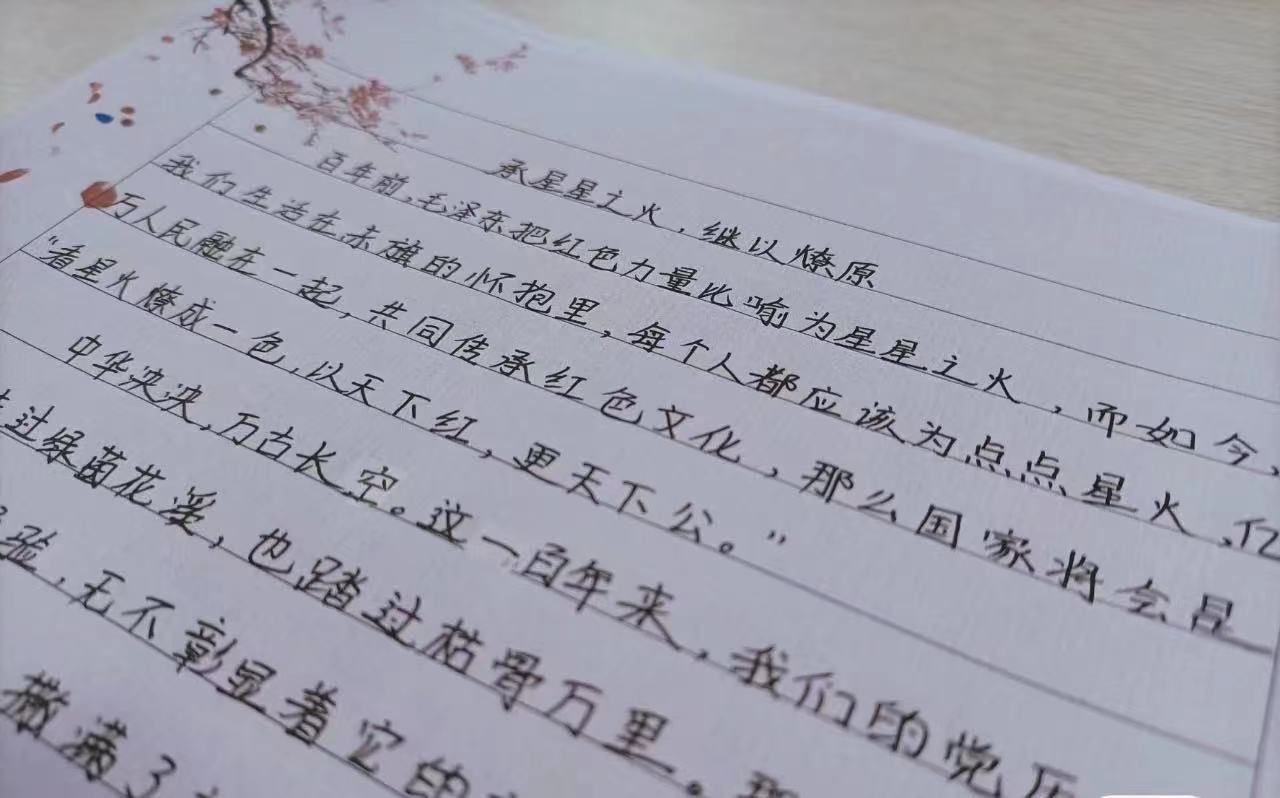 承星星之火，继以燎原
百年前，毛泽东把红色力量比喻为星星之火，而如今，
我们生活在赤旗的怀抱里，每个人都应该为点点星火，亿
万人民融在一起，共同传承红色文化，那么国家将会是
“看星火燎成一色，以天下红，更天下公。”
中华泱泱，万古长空。这一百年来，我们的党历
过绿茵花溪，也踏过枯骨万里。
验，无不彰显着它的
撒满了